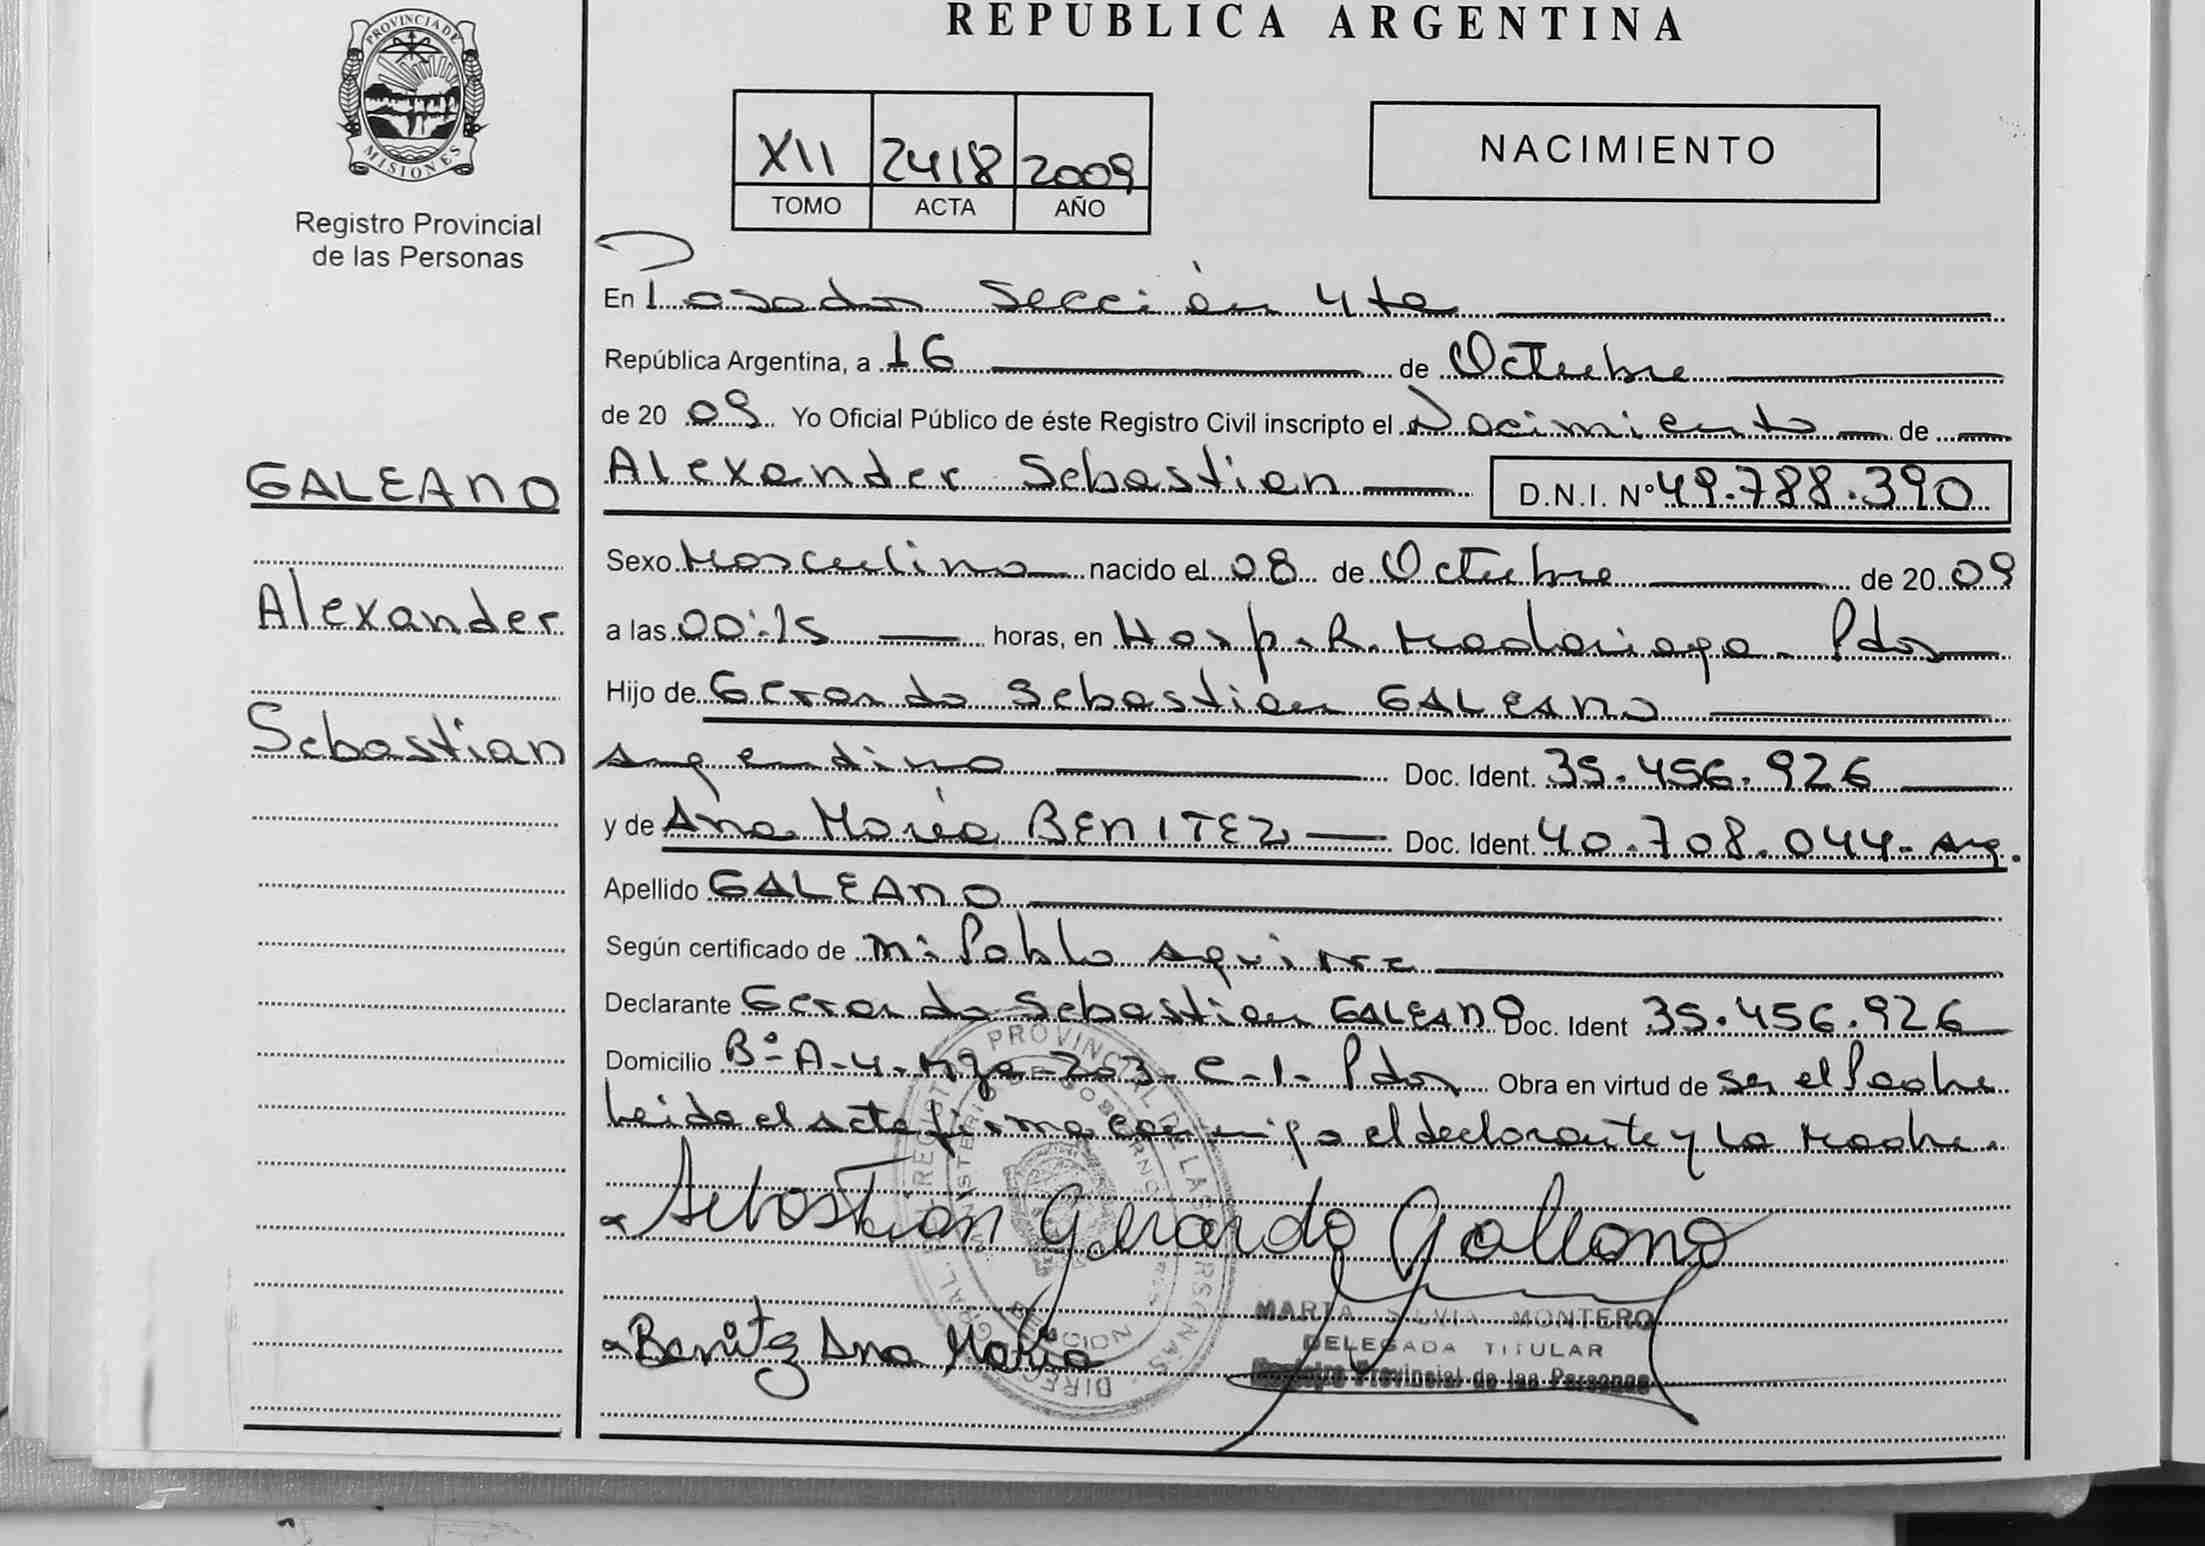 REPUBLICA ARGENTINA
PROVINCIA DE
MISIONES
Registro Provincial
de las Personas
XII 2418 2009
TOMO ACTA AÑO
NACIMIENTO
En Posadas Sección 4ta
República Argentina, a 16 de Octubre
de 20 09 Yo Oficial Público de éste Registro Civil inscripto el Nacimiento de
GALEANO
Alexander Sebastian D.N.I. Nº 49.788.390
Sexo Masculino nacido el 08 de Octubre de 20 09
Alexander
a las 00:15 horas, en Hosp. R. Madariaga - Pdas
Hijo de Gerardo Sebastián GALEANO
Sebastian
Argentino Doc. Ident. 35.456.926
y de Ana María BENITEZ Doc. Ident. 40.708.044- Arg.
Apellido GALEANO
Según certificado de Pablo Aguirre
Declarante Gerardo Sebastián GALEANO Doc. Ident 35.456.926
Domicilio Bº- A-4- Mza-203- C-1- Pdas Obra en virtud de ser el Padre
Leída el acta firma conmigo el declarante y la Madre.
Sebastian Gerardo Galeano
MARTA SILVIA MONTERO
DELEGADA TITULAR
Registro Provincial de las Personas
Benitez Ana Maria